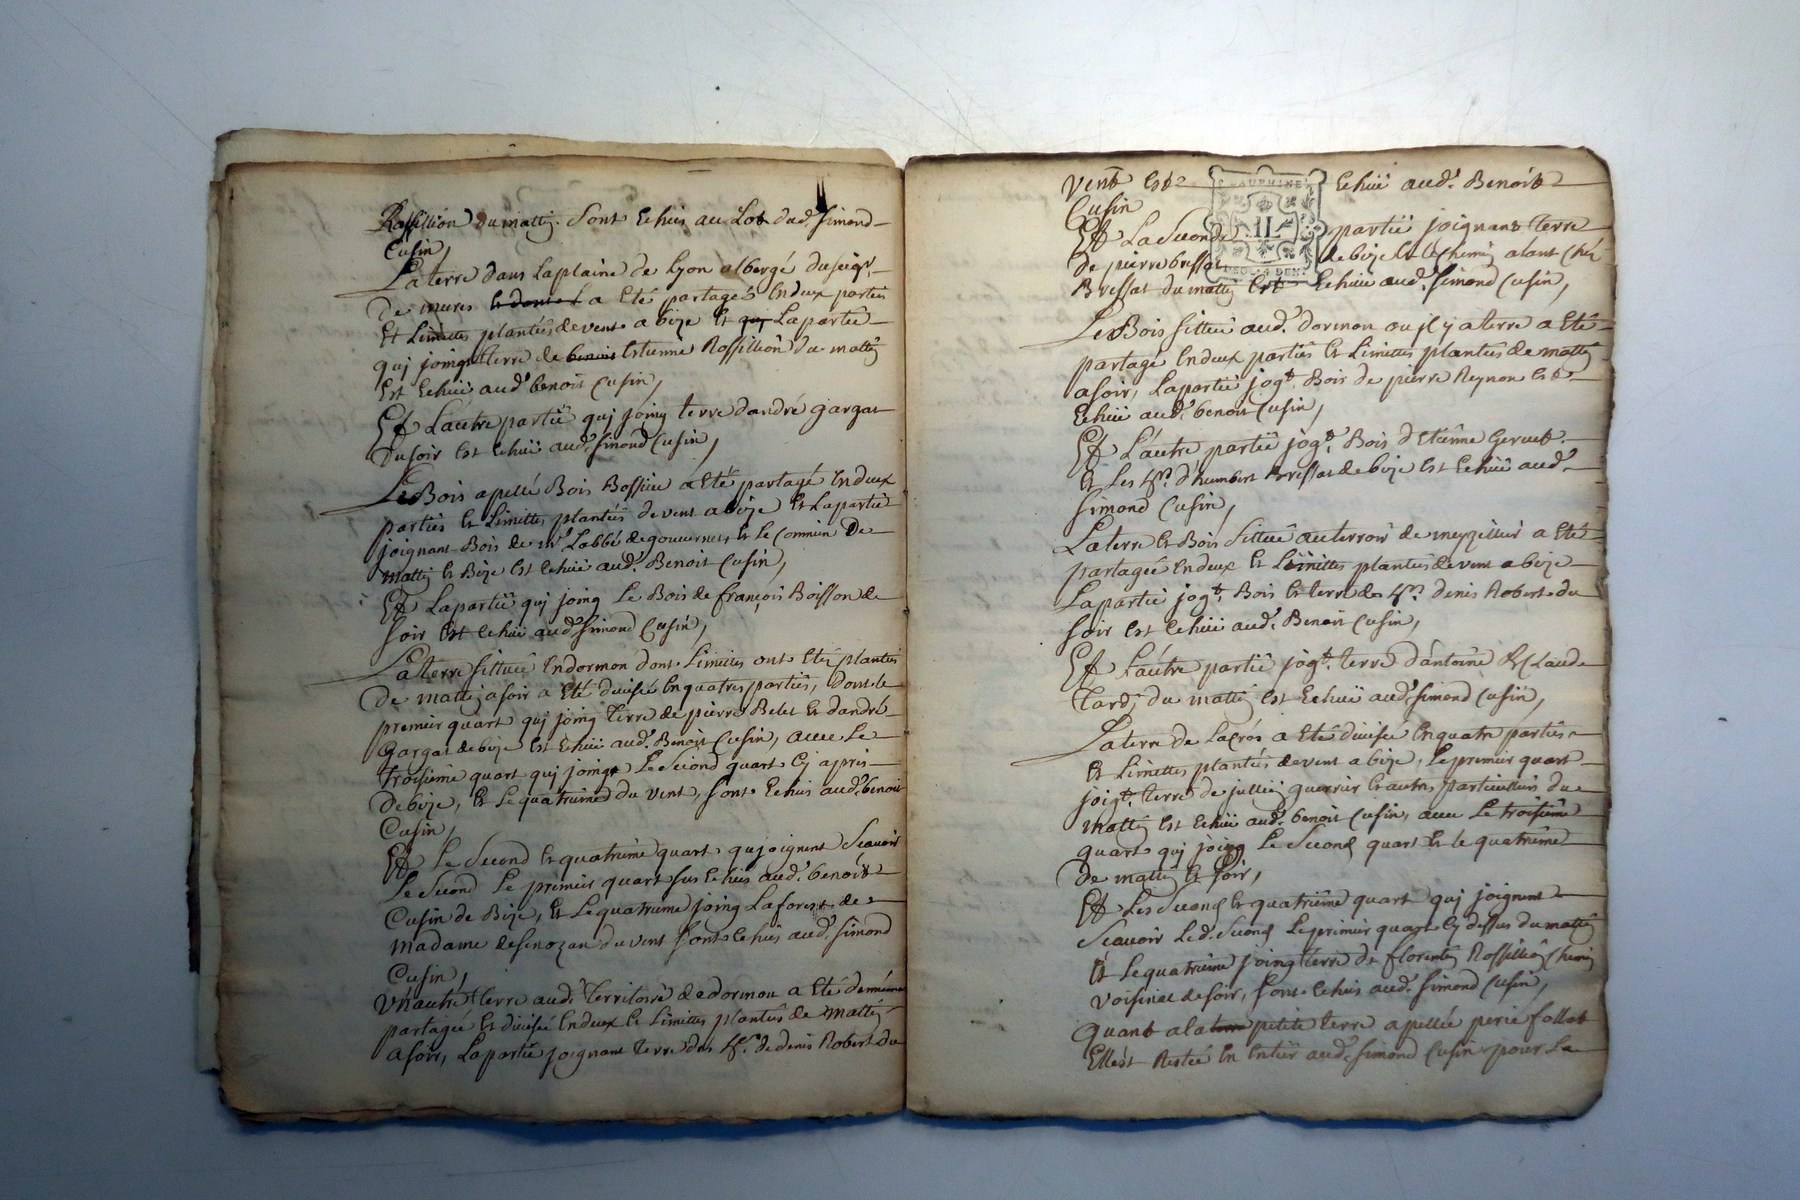 Rossillion du mattin sont Echuis au Lot dud. Simond
Cusin,
La terre dans la plaine de Lyon albergé du seigr.
De mures a Eté partagés En deux partiés
Et Limittes plantées de vent a bize Et La partie
qui joing terre de Estienne Rossillion du mattin
Est Echuë aud. benoit Cusin,
Et L'autre partië qui joing terre d'andré gargat
Du soir Est Echuë aud. Simond Cusin,
Le Bois apellé Bois Bossieu a Eté partagé En deux
partiés Et Limittes plantées de vent a bize Et La partië
joignant Bois de mr. L'abbé de gouvernet Et Le Commun De
matin Et Bize Est Echuë aud. Benoit Cusin,
Et La partië qui joing Le Bois de françois Boisson de
soir Est Echuë aud. Simond Cusin,
La terre Sittuée En dormon dont Limittes ont Etés plantés
De mattin a soir a Eté divisée En quatres partiës, Dont le
premier quart qui joing terre de pierre Belet Et d'andré
gargat de bize Est Echuë aud. Benoit Cusin, avec Le
troisieme quart qui joingt Le Second quart Cy aprés
De bize, Et Le quatrieme du vent, sont Echuis aud. benoit
Cusin,
Et Le Second Et quatrieme quart qui joignent Scavoir
Le Second Le premier quart sus Echuis aud. benoit
Cusin de Bize, Et Le quatrieme joing La forest de
madame de senozan du vent sont Echuis aud. Simond
Cusin,
Un autre terre aud. Territoire de dormon a Eté de même
partagée Et divisée En deux Et Limittes plantées de mattin
a soir, La partie joignant terre des hrs. de denis Robert du
vent Est Echuë aud. Benoit
Cusin
DAUPHINÉ
1L
Et La Seconde partië joignant terre
de pierre bressat de bize Et le chemin alant chéz
Bressat du mattin Est Echuë aud. Simond Cusin,
Le Bois sittué aud. dormon ou il y a terre a Eté
partagé En deux partiës Et Limittes plantées de mattin
a soir, La partië jogt. Bois de pierre Reynon Est
Echuë aud. benoit Cusin,
Et L'autre partië jogt. Bois d'Etiénne Gervet
Et Les hrs. d'humbert Bressat de bize Est Echuë aud.
Simond Cusin,
La terre Et Bois Sittué au terroir de meyzilier a Eté
partagée En deux Et Limittes plantées de vent a bize
La partië jogt. Bois Et terre des hrs. denis Robert du
soir Est Echuë aud. Benoit Cusin,
Et L'autre partië jogt. terre d'antoine Et Claude
Tardj du mattin Est Echuë aud. Simond Cusin,
La terre de La Crós a Eté divisée En quatre partiës
Et Limittes plantées de vent a bize, Le premier quart
joigt. terre de jullien guerrier Et autres particulliers du
mattin Est Echuë aud. benoit Cusin, avec Le troisiéme
quart qui joing Le Second quart Et le quatriéme
De mattin Et soir,
Et Le Second Et quatriéme quart qui joignent
Scavoir Le d. Second Le premier quart Cy dessus du mattin
Et Le quatriéme joing terre de florentin Rossillion chemin
voisinal de soir, sont Echuis aud. Simond Cusin,
Quant a la petite terre apellée perié follat
Ellest Restée En Entier aud. Simond Cusin pour La